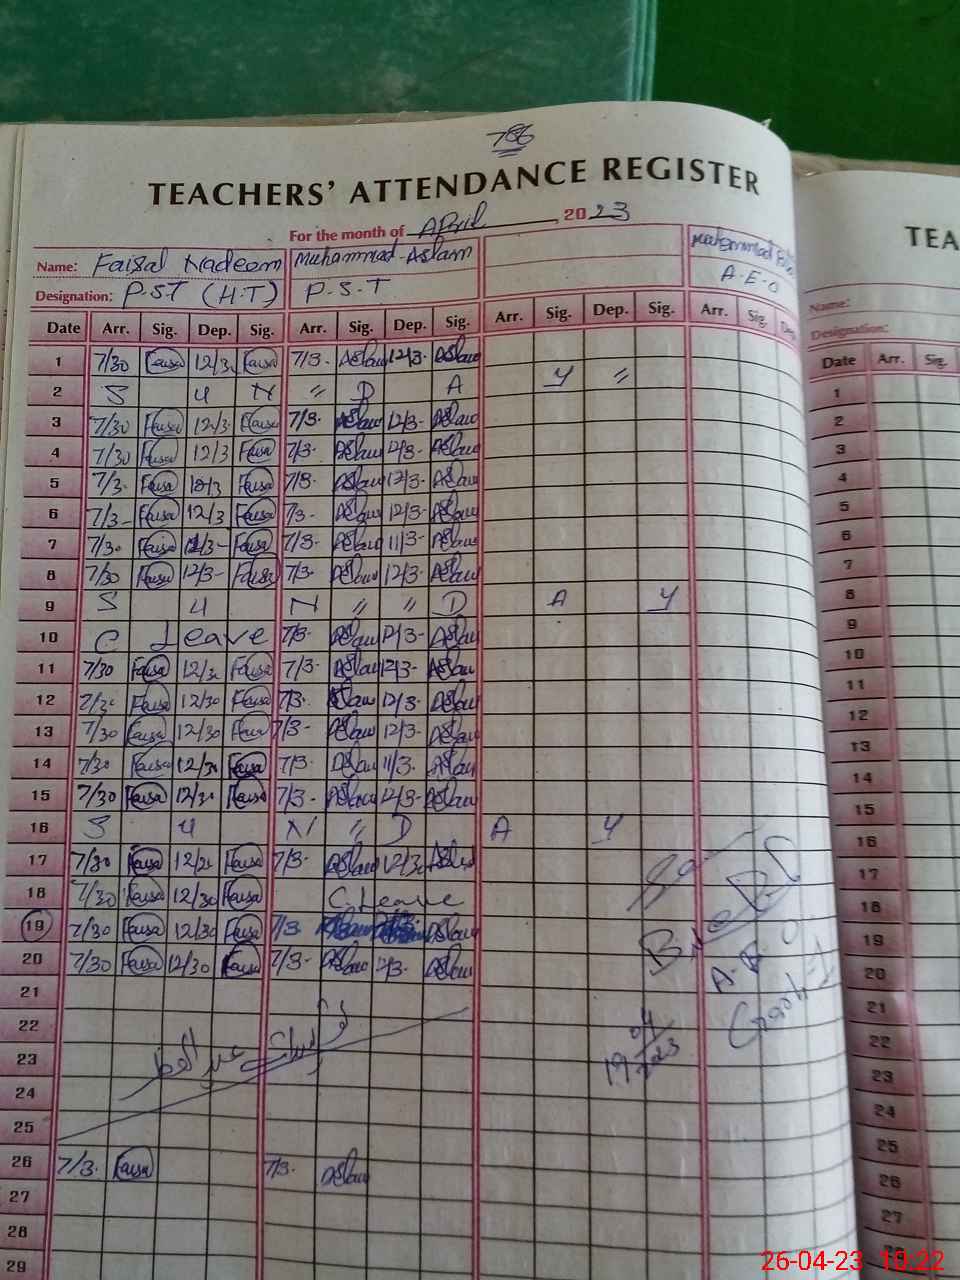 786
TEACHERS' ATTENDANCE REGISTER
For the month of April, 2023
Name: Faisal Nadeem Muhammad Aslam Muhammad
Designation: P.S.T (H.T) P.S.T A.E.O
Date Arr. Sig. Dep. Sig. Arr. Sig. Dep. Sig. Arr. Sig. Dep. Sig. Arr. Sig. Dep.
1 7/30 Faisal 12/3 Faisal 7/3 Aslam 12/3 Aslam
2 S U N " D A Y "
3 7/30 Faisal 12/3 Faisal 7/3 Aslam 12/3 Aslam
4 7/30 Faisal 12/3 Faisal 7/3 Aslam 12/3 Aslam
5 7/3 Faisal 12/3 Faisal 7/3 Aslam 12/3 Aslam
6 7/3 Faisal 12/3 Faisal 7/3 Aslam 12/3 Aslam
7 7/30 Faisal Faisal 7/3 Aslam 11/3 Aslam
8 7/30 Faisal 12/3 Faisal 7/3 Aslam 12/3 Aslam
9 S U N " " D A Y
10 C Leave 7/3 Aslam 12/3 Aslam
11 7/30 Faisal 12/30 Faisal 7/3 Aslam 12/3 Aslam
12 7/30 Faisal 12/30 Faisal 7/3 Aslam 12/3 Aslam
13 7/30 Faisal 12/30 Faisal 7/3 Aslam 12/3 Aslam
14 7/30 Faisal 12/30 Faisal 7/3 Aslam 11/3 Aslam
15 7/30 Faisal 12/30 Faisal 7/3 Aslam 12/3 Aslam
16 S U N " D A Y
17 7/30 Faisal 12/30 Faisal 7/3 Aslam 12/3 Aslam
18 7/30 Faisal 12/30 Faisal C. Leave
19 7/30 Faisal 12/30 Faisal 7/3 Aslam Aslam
20 7/30 Faisal 12/30 Faisal 7/3 Aslam 12/3 Aslam
A.E.O
21
22
19/04/2023
23
24
25
26 7/3 Faisal 7/3 Aslam
27
28
29
TEA
Name:
Designation:
Date Arr. Sig.
1
2
3
4
5
6
7
8
9
10
11
12
13
14
15
16
17
18
19
20
21
22
23
24
25
26
27
28
26-04-23 10:22